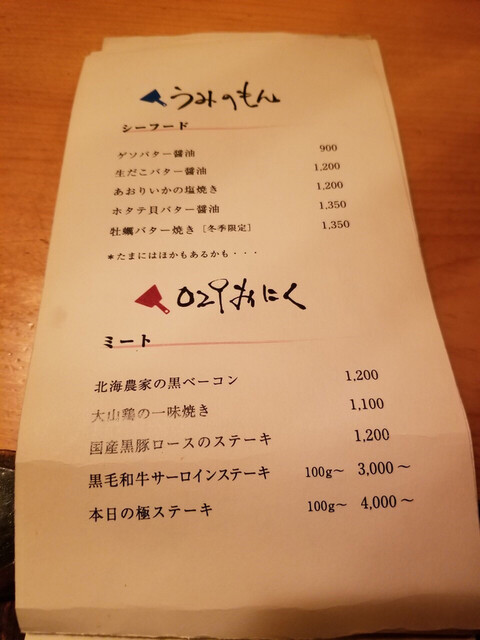 うみのもん
シーフード
ゲソバター醤油 900
生だこバター醤油 1,200
あおりいかの塩焼き 1,200
ホタテ貝バター醤油 1,350
牡蠣バター焼き［冬季限定］ 1,350
＊たまにはほかもあるかも・・・
029 おにく
ミート
北海農家の黒ベーコン 1,200
大山鶏の一味焼き 1,100
国産黒豚ロースのステーキ 1,200
黒毛和牛サーロインステーキ 100g～ 3,000～
本日の極ステーキ 100g～ 4,000～